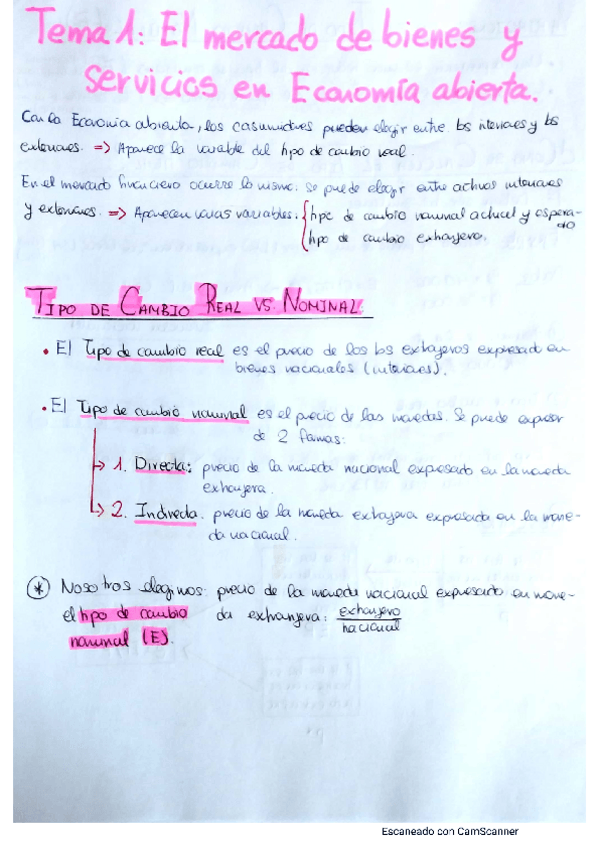 Tema 1: El mercado de bienes y
servicios en Economía abierta.
Con la Economía abierta, los consumidores pueden elegir entre bs interiores y bs
exteriores. => Aparece la variable del tipo de cambio real.
En el mercado financiero ocurre lo mismo: se puede elegir entre activos interiores
y exteriores. => Aparecen varias variables: { tipo de cambio nominal actual y espera-
do
tipo de cambio extranjero.
TIPO DE CAMBIO REAL VS. NOMINAL
• El Tipo de cambio real es el precio de los bs extrajeros expresado en
bienes nacionales (interiores).
• El Tipo de cambio nominal es el precio de las monedas. Se puede expresar
de 2 formas:
1. Directa: precio de la moneda nacional expresado en la moneda
extranjera.
2. Indirecta: precio de la moneda extranjera expresada en la mone-
da nacional.
* Nosotros elegimos: precio de la moneda nacional expresado en mone-
el tipo de cambio da extranjera: extranjero
nacional
nominal (E).
Escaneado con CamScanner